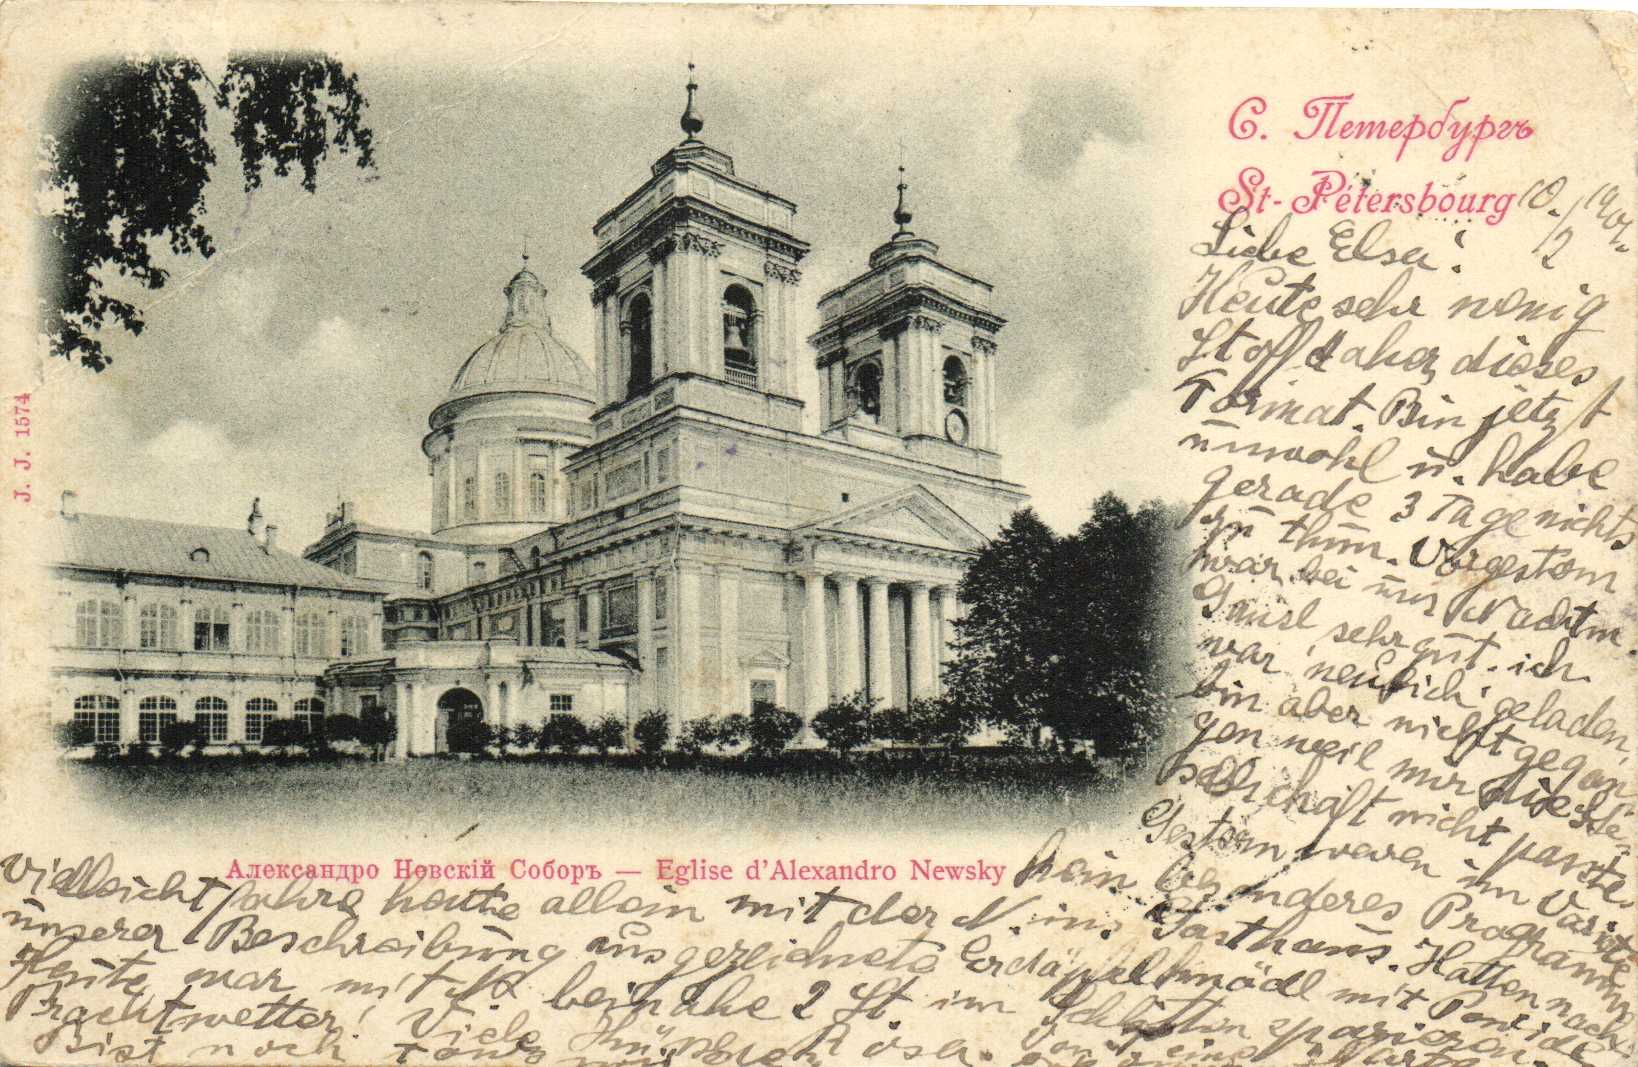 С. Петербургъ
St-Pétersbourg
10./2 1901.
Liebe Elsa!
Heute sehr wenig
Stoff daher dieses
Format. Bin jetzt
unwohl u. habe
gerade 3 Tage nichts
zu thun. Vorgestern
war bei uns Nachtm.
sehr gut. ich
war neulich geladen,
bin aber nicht gegan
gen weil mir die Ge-
sellschaft nicht passte.
Gestern waren im Varieté
kein besonderes Programm
J. J. 1574
Александро Невскій Соборъ — Eglise d'Alexandro Newsky
Vielleicht fahre heute allein mit der N. ins Gasthaus. Hatten nach
unserer Beschreibung ausgezeichnete Erdäpfelknödl mit
Heute war mit beinahe 2 St im Schlitten spazieren.
Prachtwetter! Viele
Bist noch